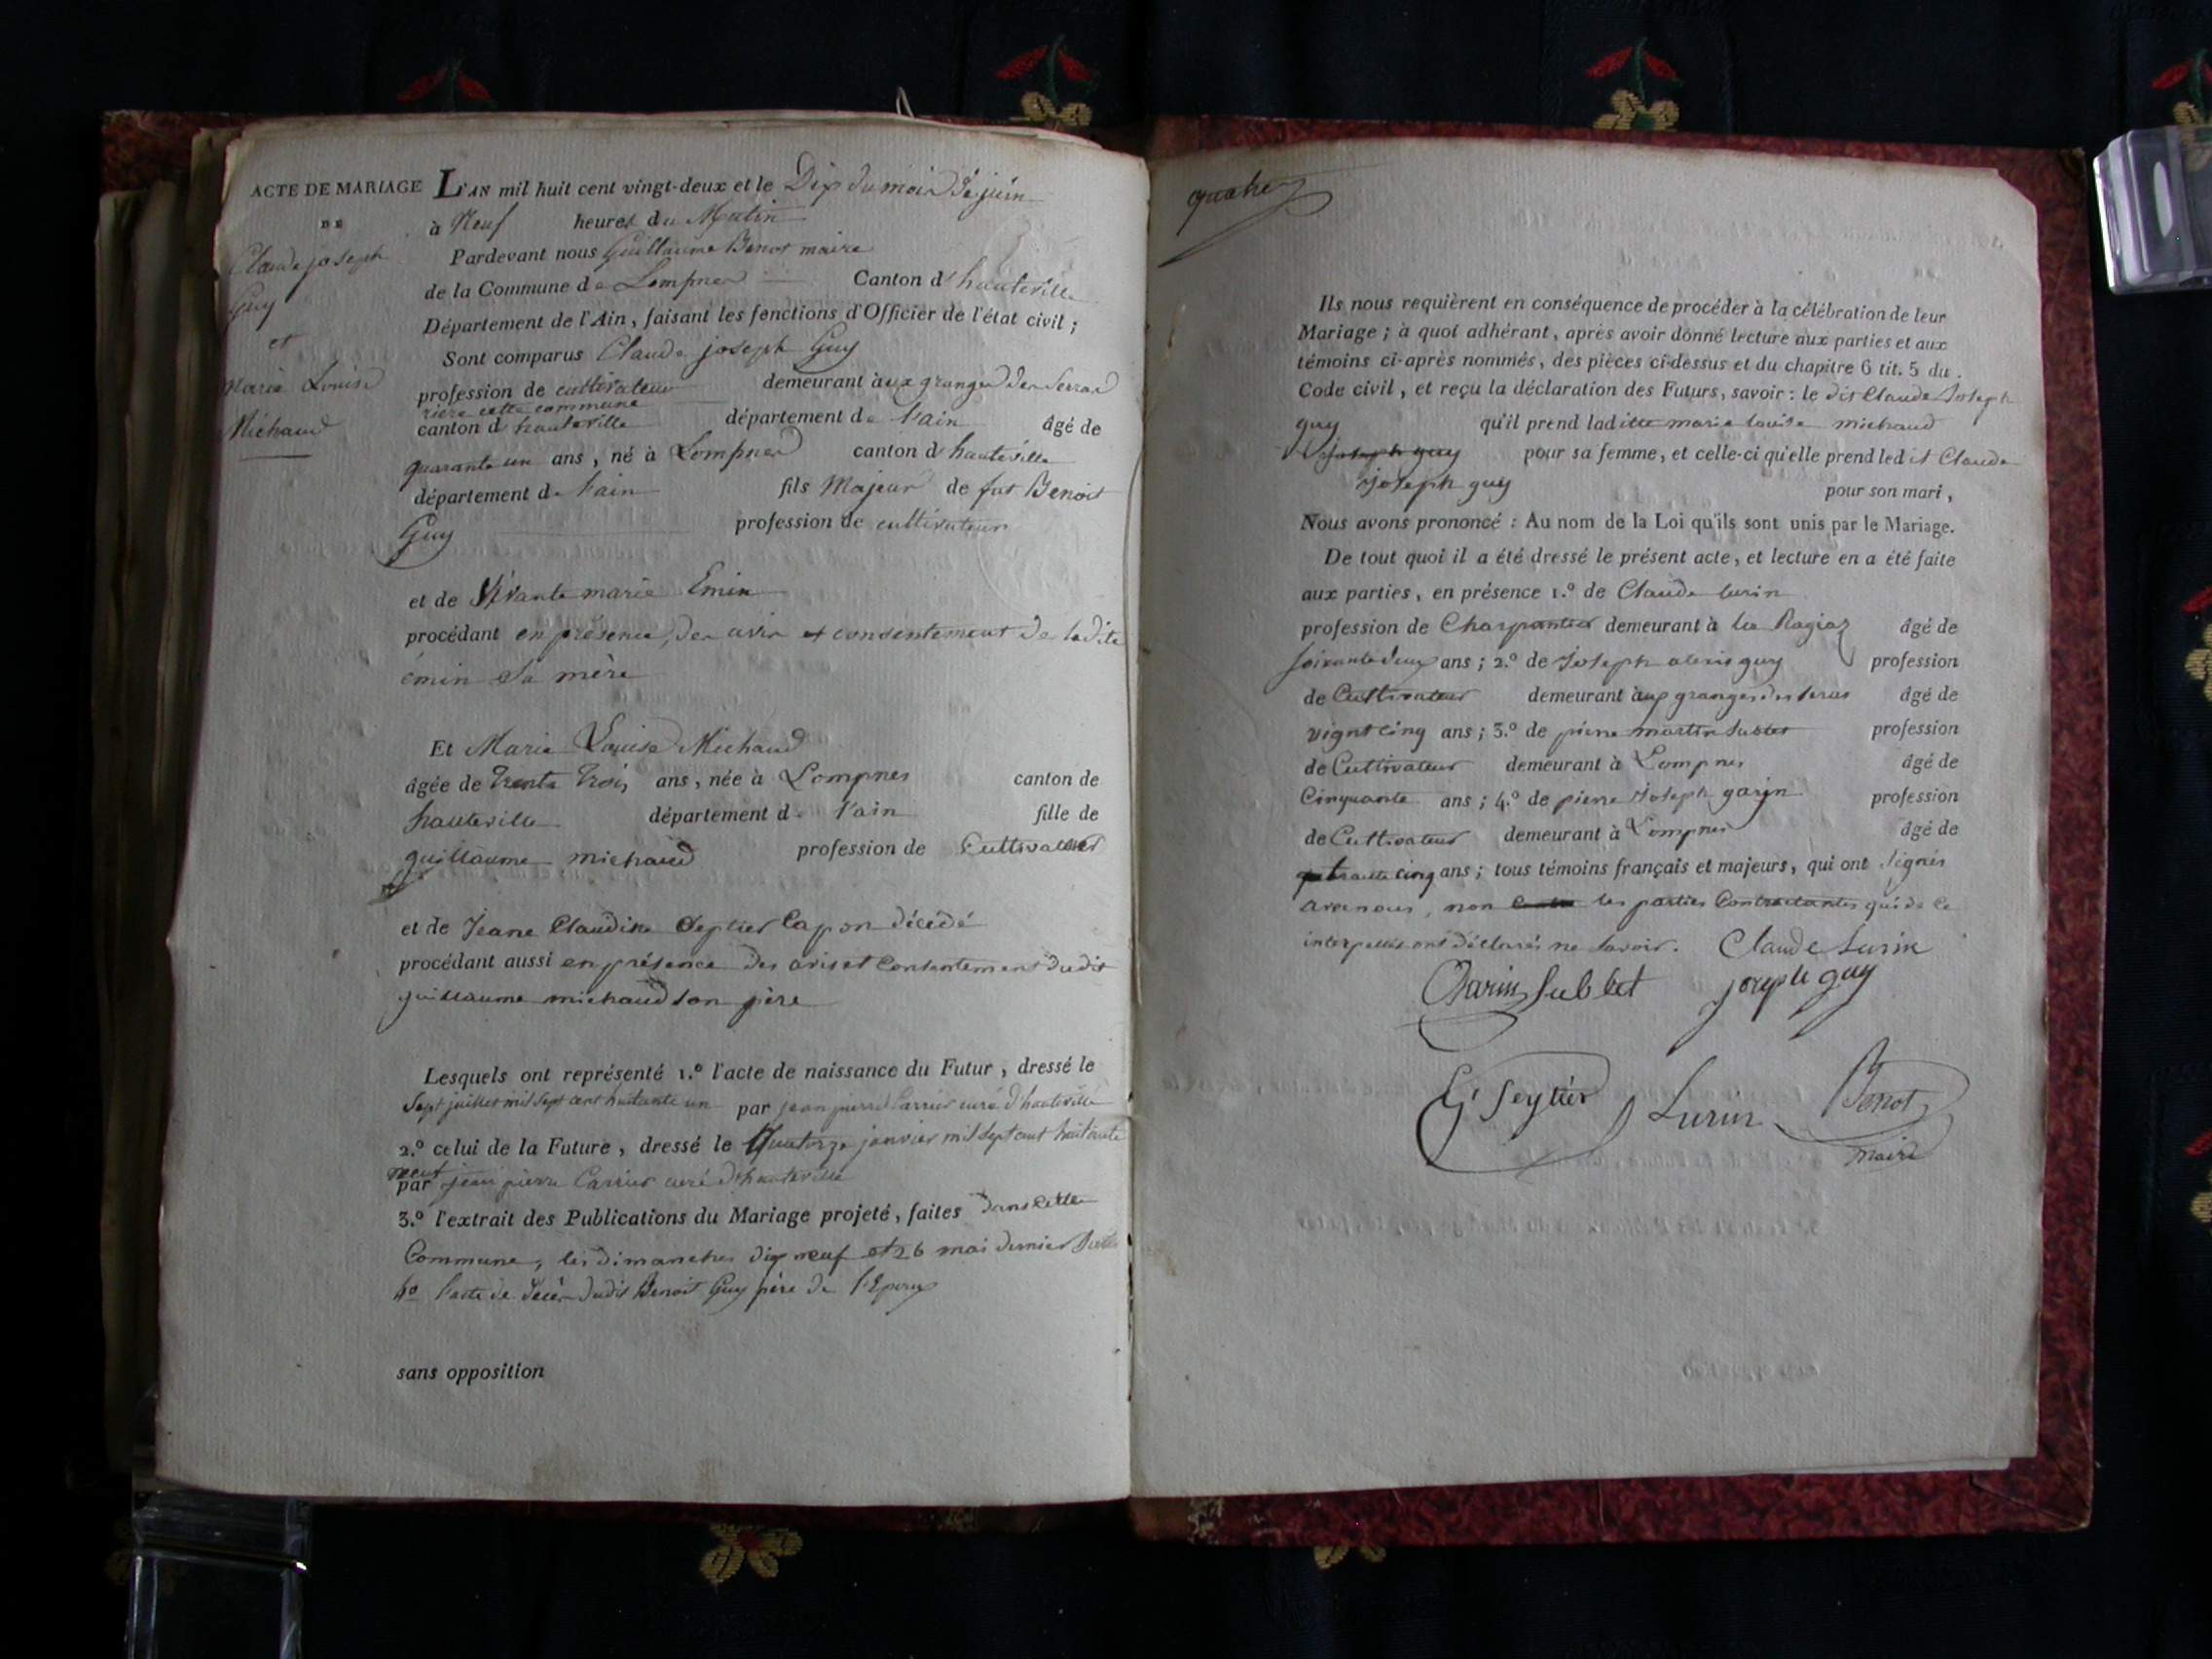 ACTE DE MARIAGE
DE
Claude joseph
Guy
et
Marie Louise
Michaud
L'AN mil huit cent vingt-deux et le Dix du mois de juin
à Neuf heures du Matin
Pardevant nous Guillaume Benot maire
de la Commune de Lompnes Canton d'hauteville
Département de l'Ain, faisant les fonctions d'Officier de l'état civil ;
Sont comparus Claude joseph Guy
profession de cultivateur demeurant aux granges des Serras
rière cette commune
canton d'hauteville département de l'ain âgé de
quarante un ans, né à Lompnes canton d'hauteville
département de l'ain fils Majeur de fut Benoit
Guy profession de cultivateur
et de Vivante marie Emin
procédant en présence, des avis et consentement de ladite
émin sa mère
Et Marie Louise Michaud
âgée de trente trois ans, née à Lompnes canton de
hauteville département de l'ain fille de
guillaume michaud profession de Cultivateur
et de Jeane Claudine décédé
procédant aussi en présence des avis et Consentement dudit
guillaume michaud son père
Lesquels ont représenté 1.º l'acte de naissance du Futur, dressé le
Sept juillet mil sept cent huitante un par jean pierre Carrier curé d'hauteville
2.º celui de la Future, dressé le Quatorze janvier mil sept cent huitante
neuf
par jean pierre Carrier curé d'hauteville
3.º l'extrait des Publications du Mariage projeté, faites dans cette
Commune, les dimanches dix neuf et 26 mai dernier
4º l'acte de décès dudit Benoit Guy père de l'Epoux
sans opposition
Ils nous requièrent en conséquence de procéder à la célébration de leur
Mariage ; à quoi adhérant, après avoir donné lecture aux parties et aux
témoins ci-après nommés, des pièces ci-dessus et du chapitre 6 tit. 5 du
Code civil, et reçu la déclaration des Futurs, savoir : le dit Claude Joseph
guy qu'il prend laditte marie louise michaud
joseph guy pour sa femme, et celle-ci qu'elle prend ledit Claude
joseph guy pour son mari,
Nous avons prononcé : Au nom de la Loi qu'ils sont unis par le Mariage.
De tout quoi il a été dressé le présent acte, et lecture en a été faite
aux parties, en présence 1.º de Claude lurin
profession de Charpentier demeurant à la Ragiaz âgé de
soixante deux ans ; 2.º de Joseph alexis guy profession
de Cultivateur demeurant aux granges des seras âgé de
vignt cinq ans ; 3.º de pierre martin sublet profession
de Cultivateur demeurant à Lompnes âgé de
Cinquante ans ; 4.º de pierre Joseph garin profession
de Cultivateur demeurant à Lompnes âgé de
trante cinq ans ; tous témoins français et majeurs, qui ont signés
avec nous, non les parties Contractantes qui de ce
interpellés ont déclarés ne savoir. Claude Lurin
Sublet joseph guy
G Seytier Lurin Benot
maire